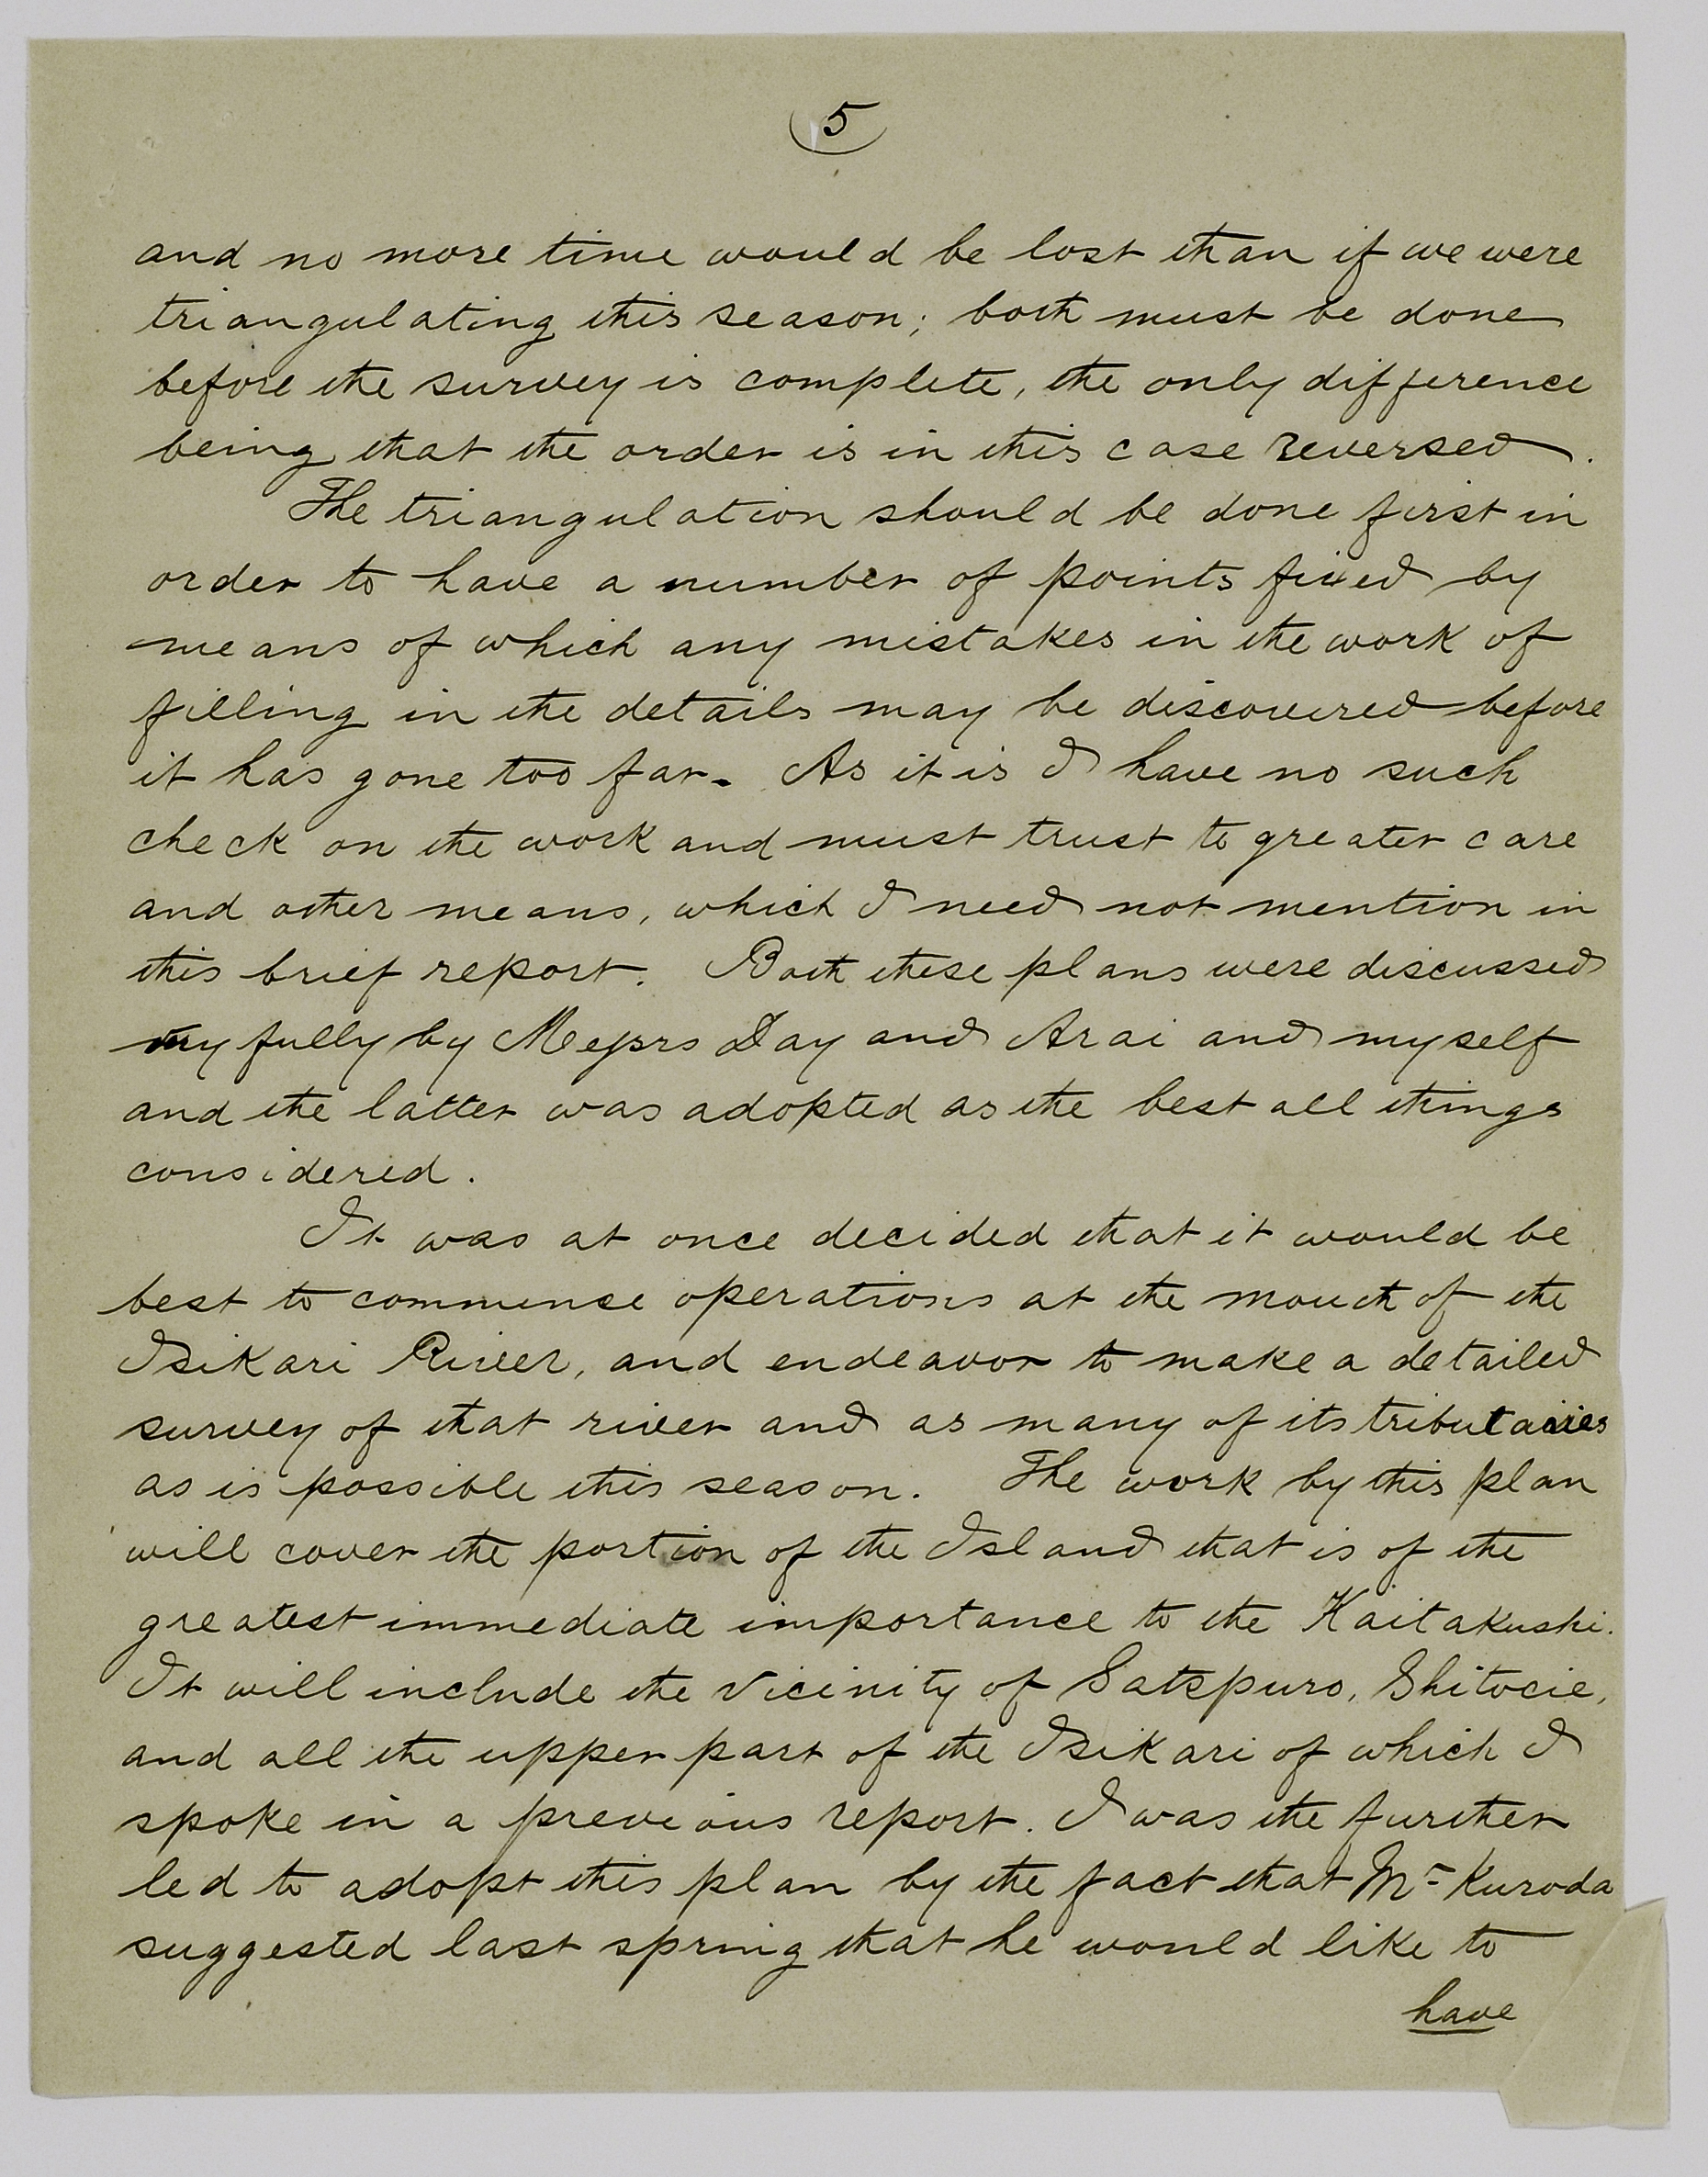 5
and no more time would be lost than if we were
triangulating this season; both must be done
before the survey is complete, the only difference
being that the order is in this case reversed.
The triangulation should be done first in
order to have a number of points fixed by
means of which any mistakes in the work of
filling in the details may be discovered before
it has gone too far. As it is I have no such
check on the work and must trust to greater care
and other means, which I need not mention in
this brief report. Both these plans were discussed
very fully by Messrs Day and Arai and myself
and the latter was adopted as the best all things
considered.
It was at once decided that it would be
best to commence operations at the mouth of the
Isikari River, and endeavor to make a detailed
survey of that river and as many of its tributaries
as is possible this season. The work by this plan
will cover the portion of the Island that is of the
greatest immediate importance to the Kaitakushi.
It will include the vicinity of Satspuro, Shitocie,
and all the upper part of the Isikari of which I
spoke in a previous report. I was the further
led to adopt this plan by the fact that Mr Kuroda
suggested last spring that he would like to
have